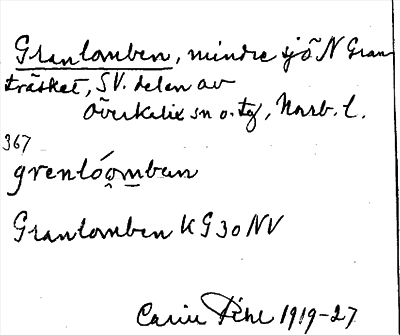 Grantomben, mindre sjö N Gran-
träsket, SV. delen av
Överkalix sn o. tg, Norrb. l.
367
grentóomban
Grantomben KG 30 NV
Carin Pihl 1919-27